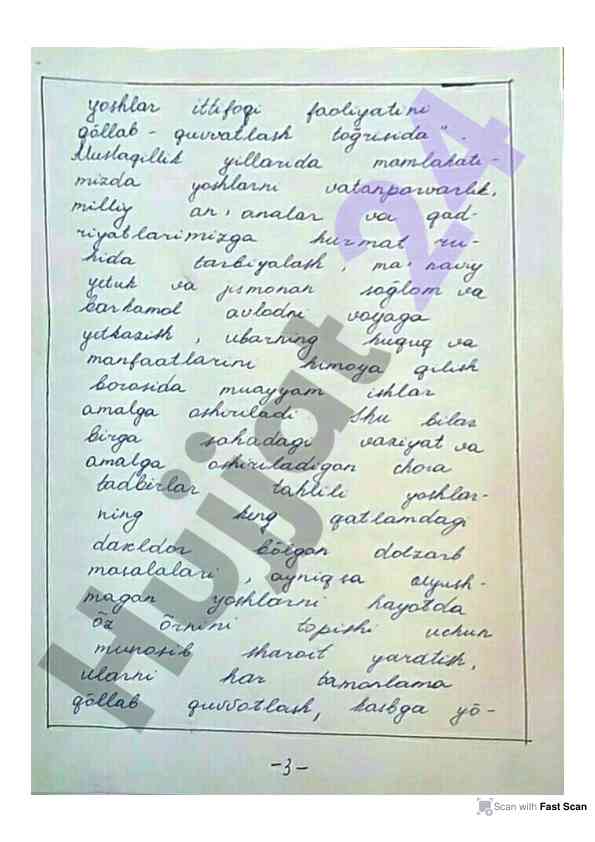 yoshlar ittifoqi faoliyatini
qõllab - quvvatlash toğrisida".
Mustaqillik yillarida mamlakati-
mizda yoshlarni vatanparvarlik,
milliy an'analar va qad-
riyatlarimizga hurmat ru-
hida tarbiyalash, ma'naviy
yetuk va jismonan soğlom va
barkamol avlodni voyaga
yetkazish, ularning huquq va
manfaatlarini himoya qilish
borasida muayyam ishlar
amalga oshiriladi Shu bilan
birga sohadagi vaziyat va
amalga oshiriladigan chora
tadbirlar tahlili yoshlar-
ning keng qatlamdagi
daxldor bõlgan dolzarb
masalalari, ayniqsa uyush-
magan yoshlarni hayotda
õz õrnini topishi uchun
munosib sharoit yaratish,
ularni har tamonlama
qõllab quvvatlash, kasbga yõ-
-3-
Hujjat 24
Scan with Fast Scan